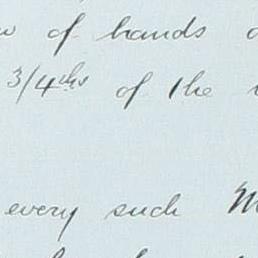 of hands
3/4ths of the
every such